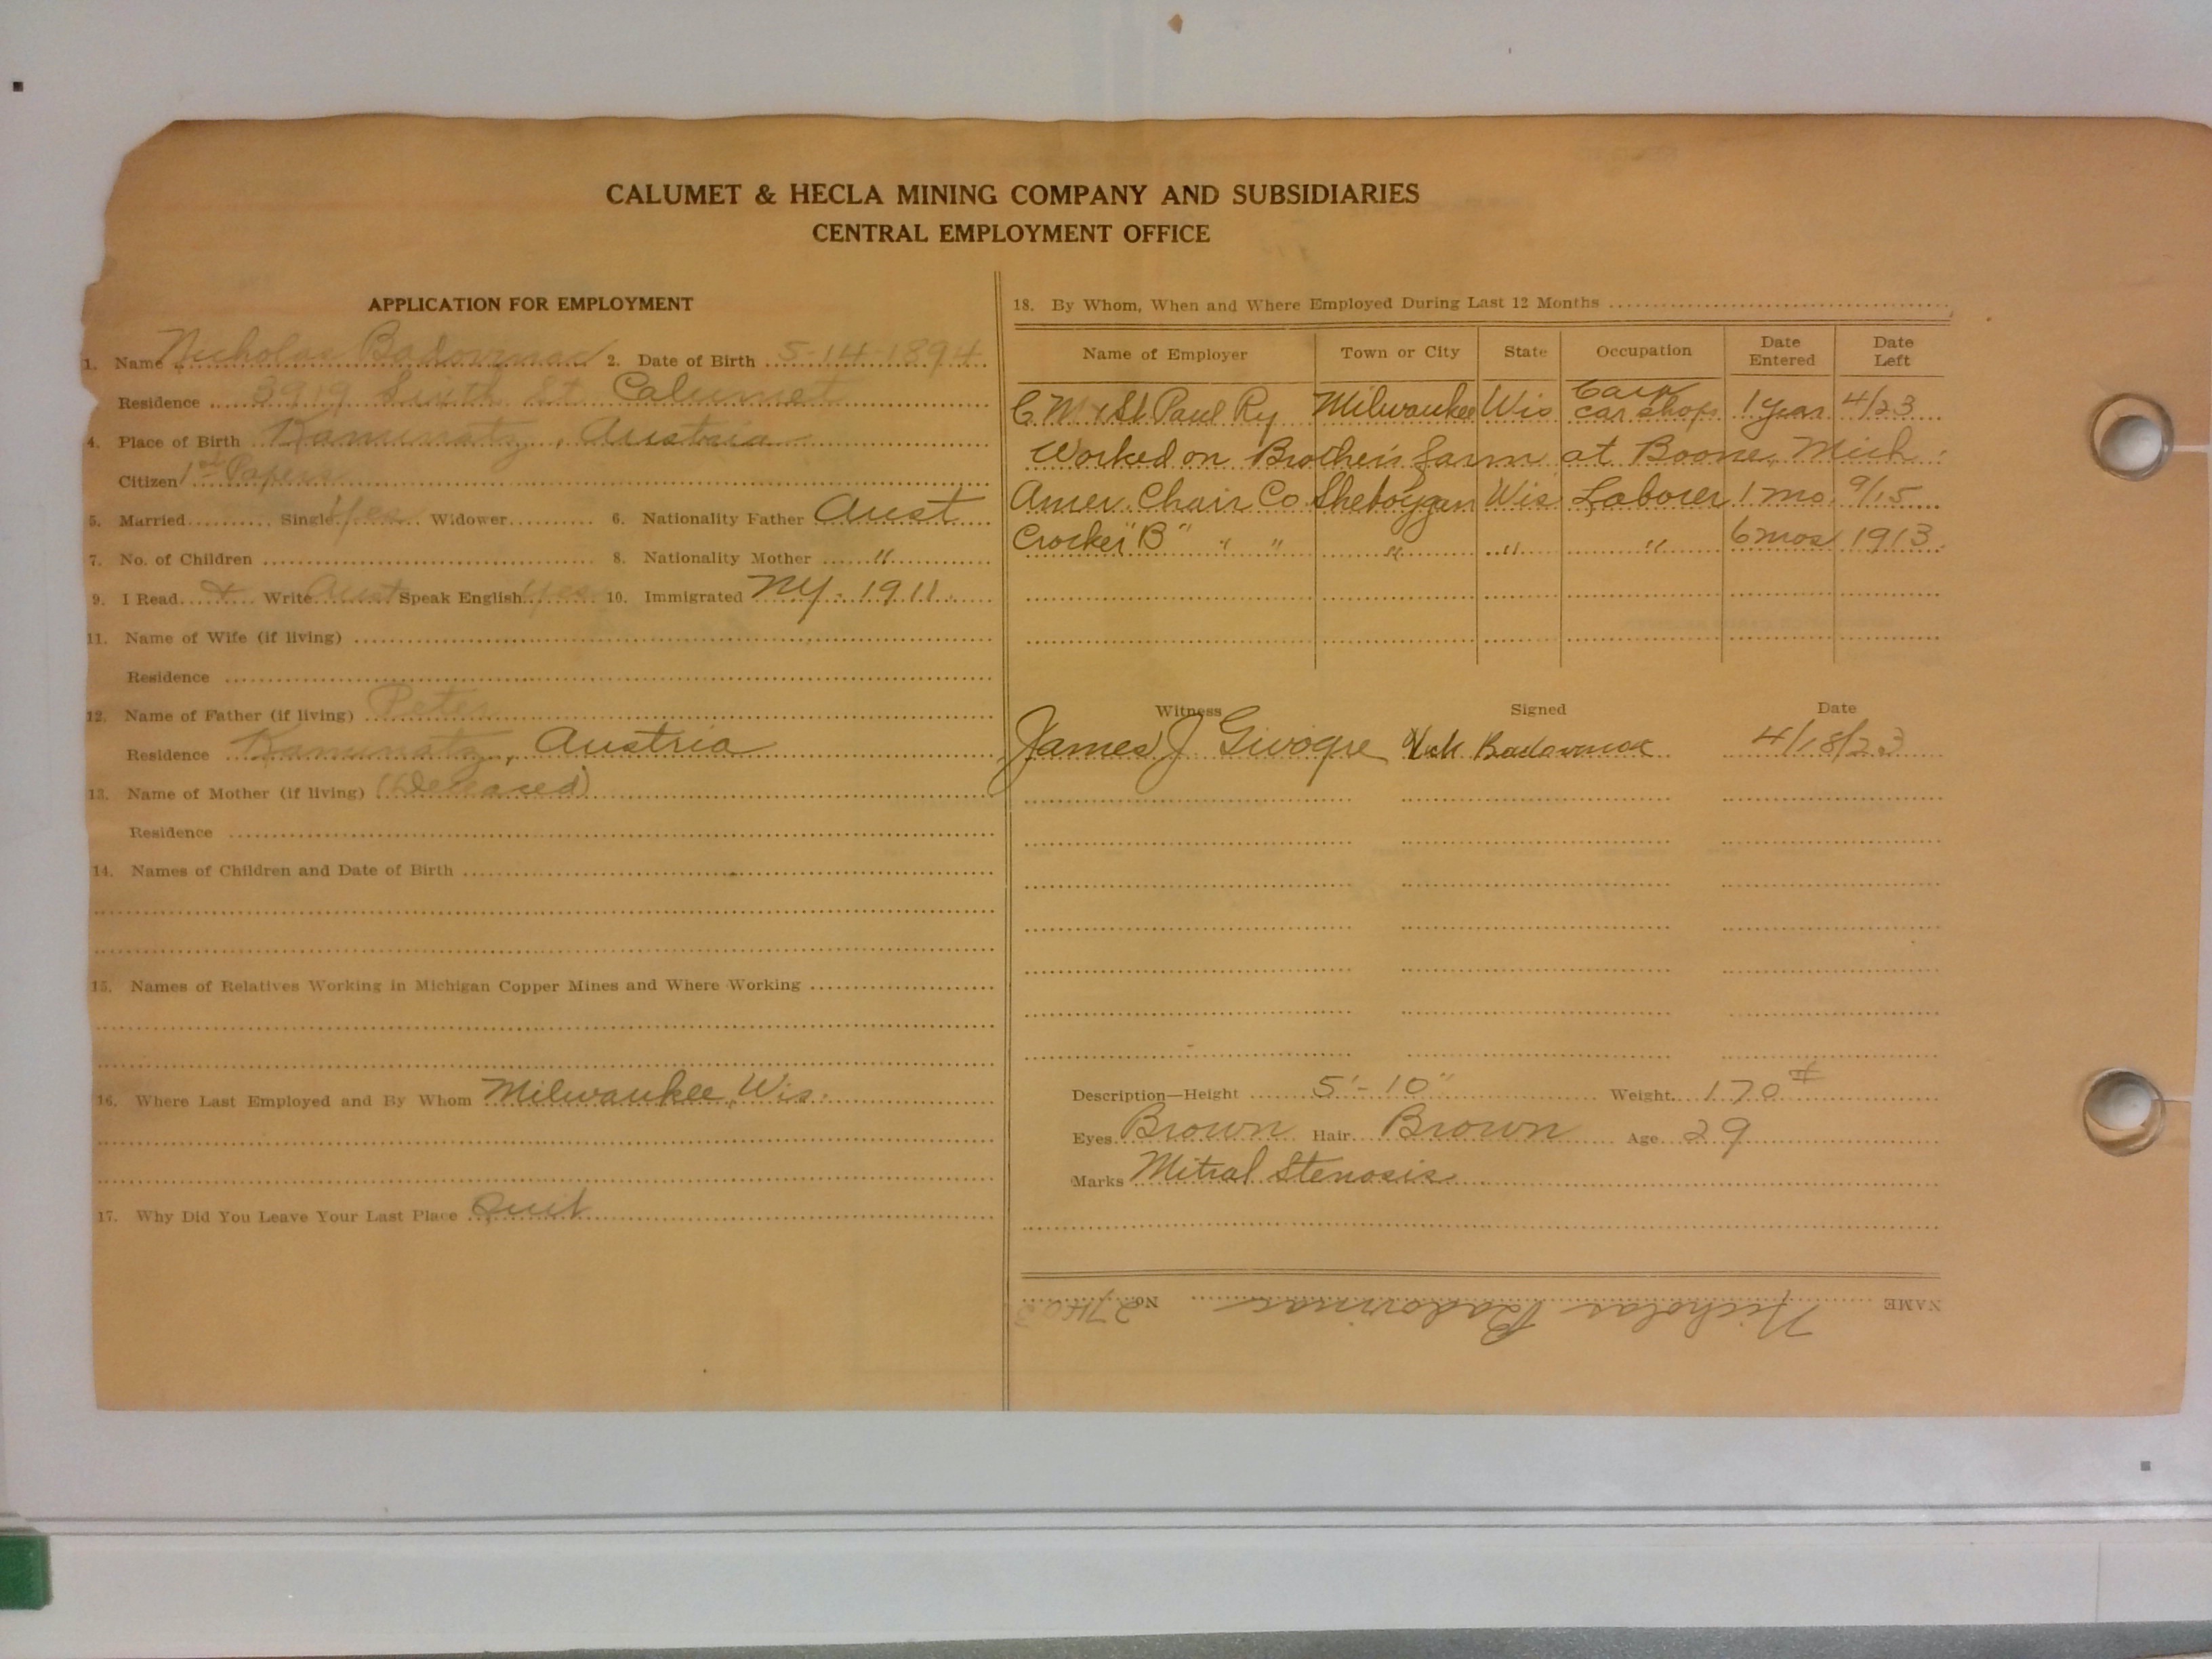 CALUMET & HECLA MINING COMPANY AND SUBSIDIARIES
CENTRAL EMPLOYMENT OFFICE
APPLICATION FOR EMPLOYMENT
1. Name Nicholas Badovinac 2. Date of Birth 5-14-1894
Residence 3919 Sixth St Calumet
4. Place of Birth Kaminatz, Austria
Citizen 1st Papers
5. Married Single Yes Widower 6. Nationality Father Aust
7. No. of Children 8. Nationality Mother "
9. I Read & Write Aust Speak English Yes 10. Immigrated NY-1911
11. Name of Wife (if living)
Residence
12. Name of Father (if living) Peter
Residence Kaminatz, Austria
13. Name of Mother (if living) (Deceased)
Residence
14. Names of Children and Date of Birth
15. Names of Relatives Working in Michigan Copper Mines and Where Working
16. Where Last Employed and By Whom Milwaukee, Wis.
17. Why Did You Leave Your Last Place Quit
18. By Whom, When and Where Employed During Last 12 Months
Name of Employer Town or City State Occupation Date Entered Date Left
C M & St Paul Ry Milwaukee Wis car shops 1 year 4/23
Worked on Brother's farm at Boone, Mich
Amer. Chair Co Sheboygan Wis Laborer 1 mo. 9/15
Crocker "B" " " " " " 6 mos 1913
Witness Signed Date
James J Nick Badovinac 4/18/23
Description—Height 5'-10" Weight 170#
Eyes Brown Hair Brown Age 29
Marks Mitral Stenosis
NAME Nicholas Badovinac No.